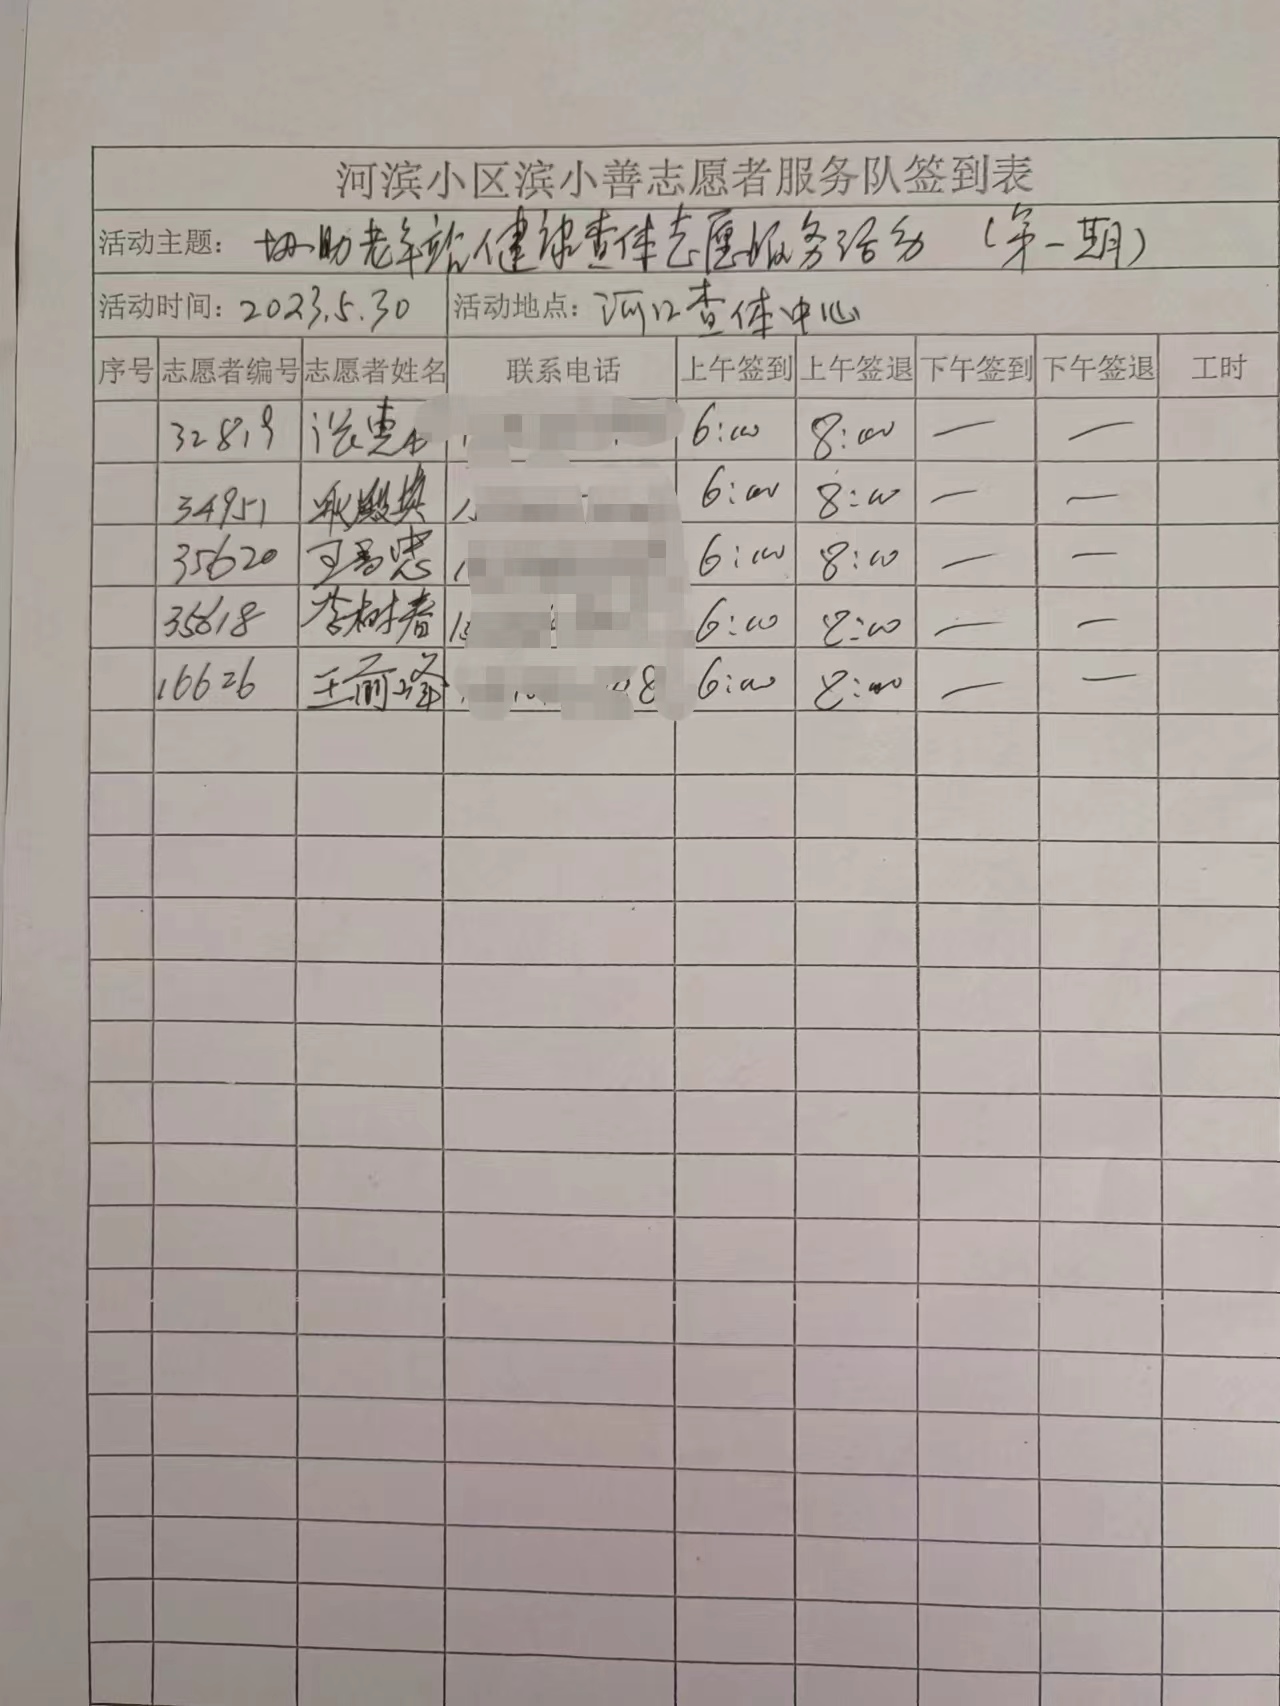 河滨小区滨小善志愿者服务队签到表
活动主题： 协助老年站健康查体志愿服务活动 （第一期）
活动时间：2023.5.30 活动地点：河口查体中心
序号 志愿者编号 志愿者姓名 联系电话 上午签到 上午签退 下午签到 下午签退 工时
32819 6:00 8:00 — —
34951 耿殿英 6:00 8:00 — —
35620 忠 6:00 8:00 — —
35618 李树春 6:00 8:00 — —
16626 王前峰 8 6:00 8:00 — —